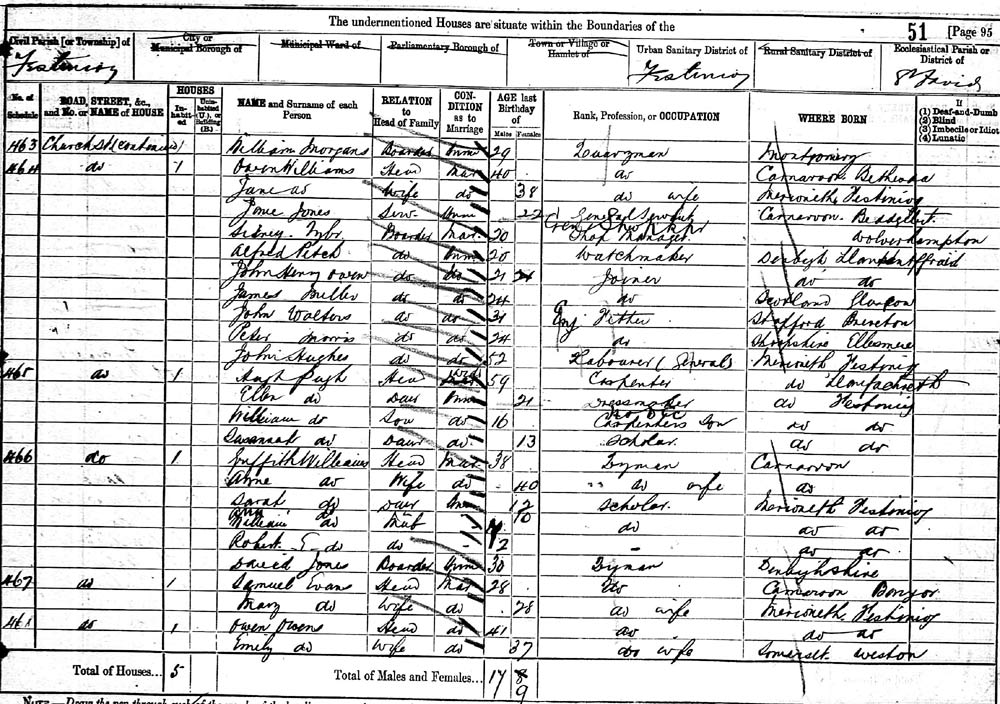 The undermentioned Houses are situate within the Boundaries of the
51 [Page 95
Civil Parish [or Township] of City or Municipal Borough of Municipal Ward of Parliamentary Borough of Town or Village or Hamlet of Urban Sanitary District of Rural Sanitary District of Ecclesiastical Parish or District of
Festiniog Festiniog St David
No. of Schedule ROAD, STREET, &c., and No. or NAME of HOUSE HOUSES Inhabited Uninhabited (U.), or Building (B.) NAME and Surname of each Person RELATION to Head of Family CONDITION as to Marriage AGE last Birthday of Males Females Rank, Profession, or OCCUPATION WHERE BORN If (1) Deaf-and-Dumb (2) Blind (3) Imbecile or Idiot (4) Lunatic
463 Church St (continued) William Morgans Boarder Unm 29 Quarryman Montgomery
464 do 1 Owen Williams Head Mar 40 do Carnarvon Bethesda
Jane do Wife do 38 do wife Merioneth Festiniog
Jane Jones Serv. Unm 22 General Servant Carnarvon Beddgelert
Sidney Boarder Mar. 20 Shop Manager Wolverhampton
Alfred do Unm 20 Watchmaker Denbigh
John Henry Owen do do 21 Joiner do do
James Miller do do 24 do Scotland Glasgow
John Walters do do 31 Eng Fitter Stafford Brereton
Peter Morris do do 24 do Shropshire Ellesmere
John Hughes do do 52 Labourer (General) Merioneth Festiniog
465 do 1 Hugh Pugh Head 59 Carpenter do Llanfachreth
Ellen do Daur Unm 21 Dressmaker do Festiniog
William do Son do 16 Carpenters Son do do
Susannah do Daur do 13 Scholar do do
466 do 1 Griffith Williams Head Mar 38 Carnarvon
Anne do Wife do 40 " do wife do
Sarah do Daur Unm 12 Scholar Merioneth Festiniog
William do 10 do do do
Robert T do do 2 - do do
David Jones Boarder Unm 30 Denbighshire
467 do 1 Samuel Evans Head Mar 28 Do Carnarvon Bangor
Mary do Wife do 28 do wife Merioneth Festiniog
do 1 Owen Owens Head do 41 do do do
Emily do Wife do 37 do wife Somerset Weston
Total of Houses... 5 Total of Males and Females... 17 8
9